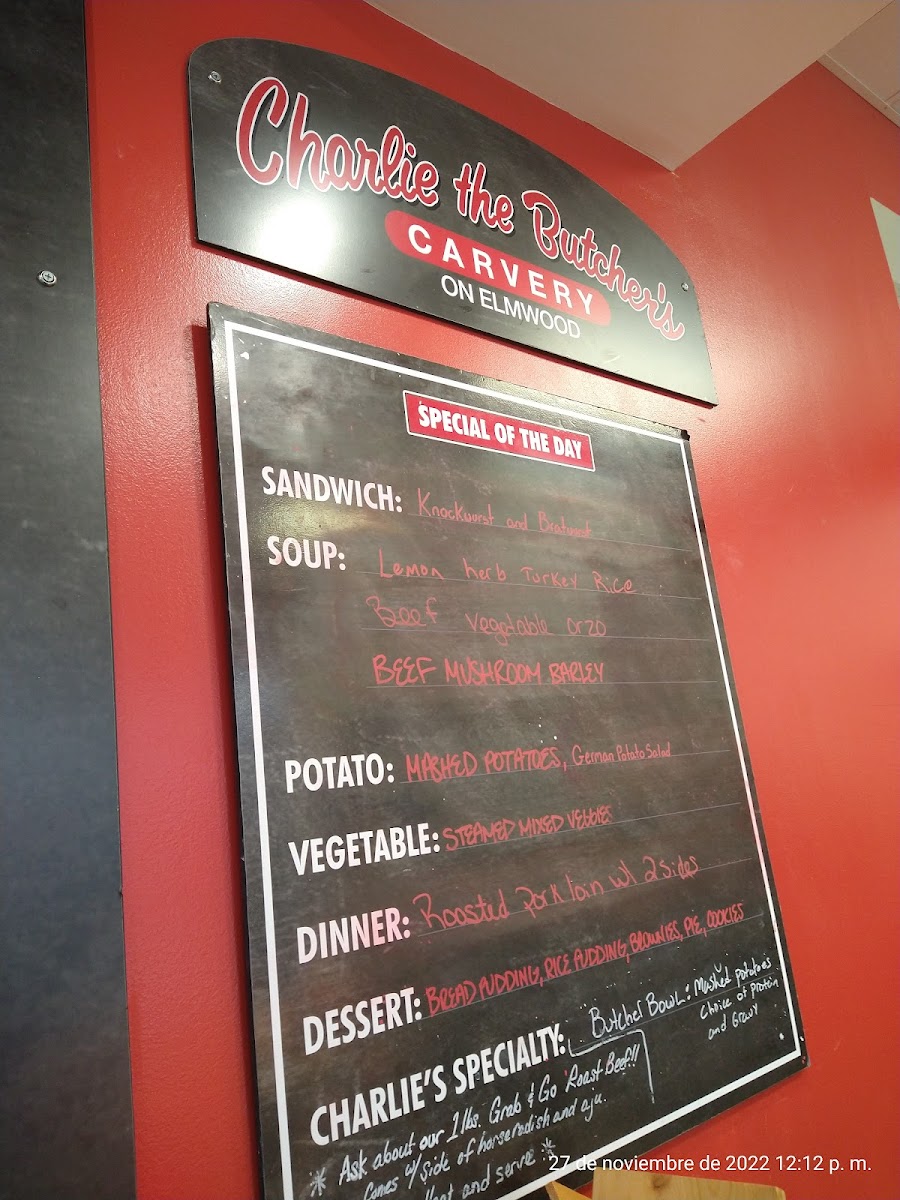 Charlie the Butcher's
CARVERY
ON ELMWOOD
SPECIAL OF THE DAY
SANDWICH: Knockwurst and Bratwurst
SOUP: Lemon herb Turkey Rice
Beef vegetable orzo
BEEF MUSHROOM BARLEY
POTATO: MASHED POTATOES, German Potato Salad
VEGETABLE: STEAMED MIXED VEGGIES
DINNER: Roasted pork loin w/ 2 sides
DESSERT: BREAD PUDDING, RICE PUDDING, BROWNIES, PIE, COOKIES
CHARLIE'S SPECIALTY: Butcher Bowl: Mashed potatoes
Choice of protein
and Gravy
* Ask about our 1 lbs. Grab & Go Roast Beef!!
Comes w/ side of horseradish and aju.
and serve *
27 de noviembre de 2022 12:12 p. m.